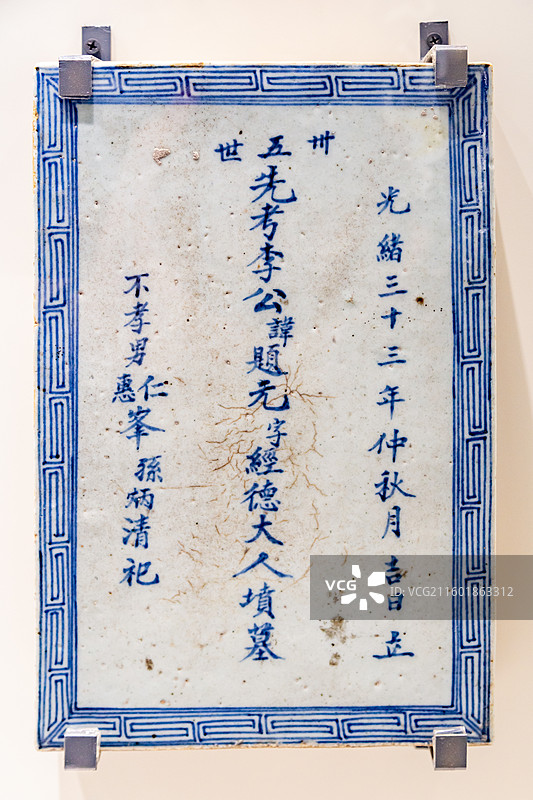 光緒三十三年仲秋月吉日立
卅五世
先考李公諱題元字經德大人墳墓
不孝男仁惠峯孫炳清祀
VCG
VCG211601863312